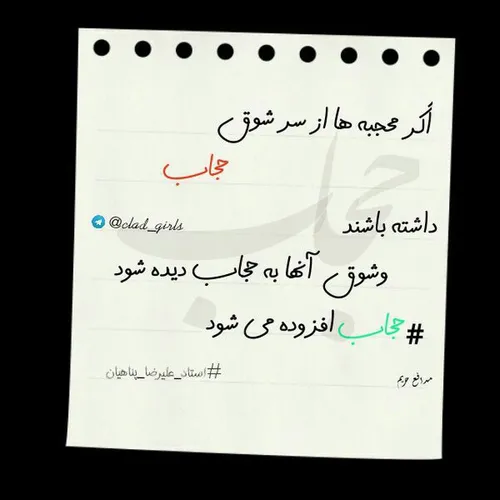 اگر محجبه ها از سر شوق
حجاب
داشته باشند
@clad_girls
وشوق آنها به حجاب دیده شود
#حجاب افزوده می شود
مدافع حریم
#استاد_علیرضا_پناهیان
حجاب